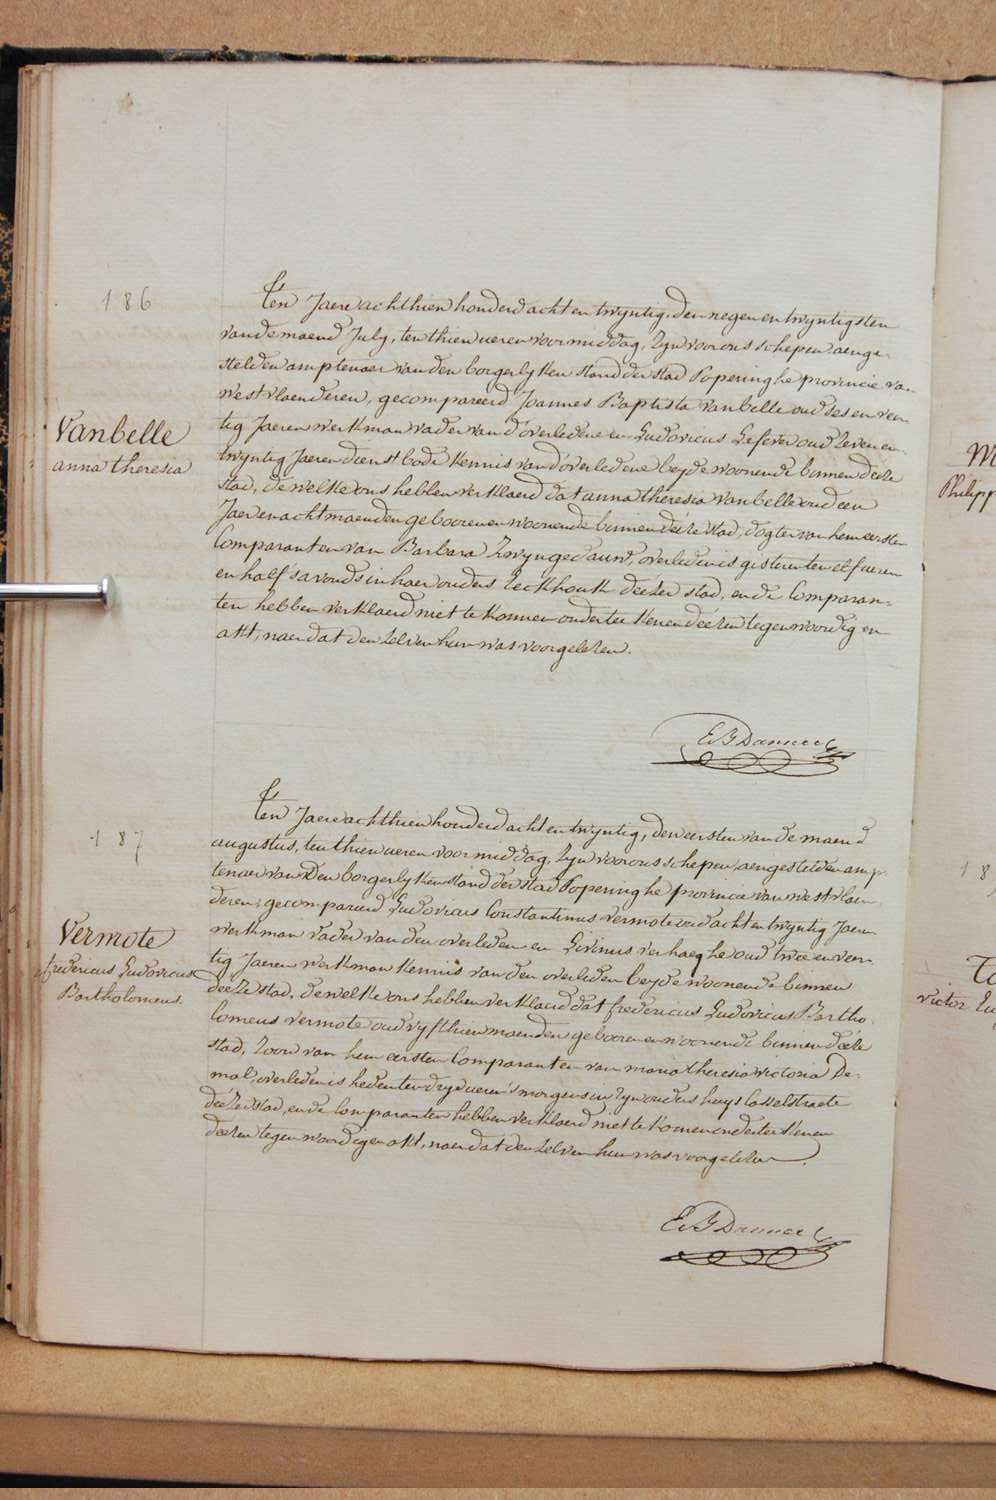 186
Ten Jaere achthien honderd acht en twyntig, den negen en twyntigsten
van de maend July, ten thien ueren voormiddag, Zyn voor ons schepen aenge-
stelden amptenaer van den borgerlyken stand der stad Poperinghe provincie van
Westvlaenderen, gecompareerd Joannes Baptista Vanbelle oud ses en veer-
Vanbelle
anna theresia
tig Jaeren werkman vader van d'overledene en Ludovicus Lefever oud zeven en
twyntig Jaeren dienstbode Kennis van d'overledene beyde woonende binnen deeze
stad, de welke ons hebben verklaerd dat anna theresia vanbelle oud een
Jaer en acht maenden geboren en woonende binnen deeze stad, dogter van hem eersten
Comparant en van Barbara Zwyngedauw, overleden is gisteren ten elf ueren
en half s'avonds in haer ouders Eeckhoutk deezer stad, en de Comparan-
ten hebben verklaerd niet te konnen onderteekenen deezen tegenwoordigen
akt, naer dat den zelven hun was voorgelezen.
E B Dannee
187
Ten Jaere achthien honderd acht en twyntig, den eersten van de maend
augustus, ten thien ueren voormiddag, Zyn voor ons schepen, aengestelden amp-
tenaer van den borgerlyken stand der stad Poperinghe provincie van westvlaen-
deren, gecompareerd Ludovicus Constantinus Vermote oud acht en twyntig Jaeren
Vermote
fredericus Ludovicus
Bartholomeus.
werkman vader van den overleden en Livinus verhaeghe oud twee en veer-
tig Jaeren werkman Kennis van den overleden beyde woonende binnen
deeze stad, de welke ons hebben verklaerd dat fredericus Ludovicus Bartho-
lomeus vermote oud vyfthien maenden geboren en woonende binnen deeze
stad, Zoon van hem eersten Comparant en van maria theresia victoria De-
mol, overleden is heden ten dry ueren s'morgens in Zyn ouders huys Casselstraete
deezer stad, en de Comparanten hebben verklaerd niet te konnen onderteekenen
deezen tegenwoordigen akt, naer dat den zelven hun was voorgelezen.
E B Dannee
Philipp
18
Victor Eu